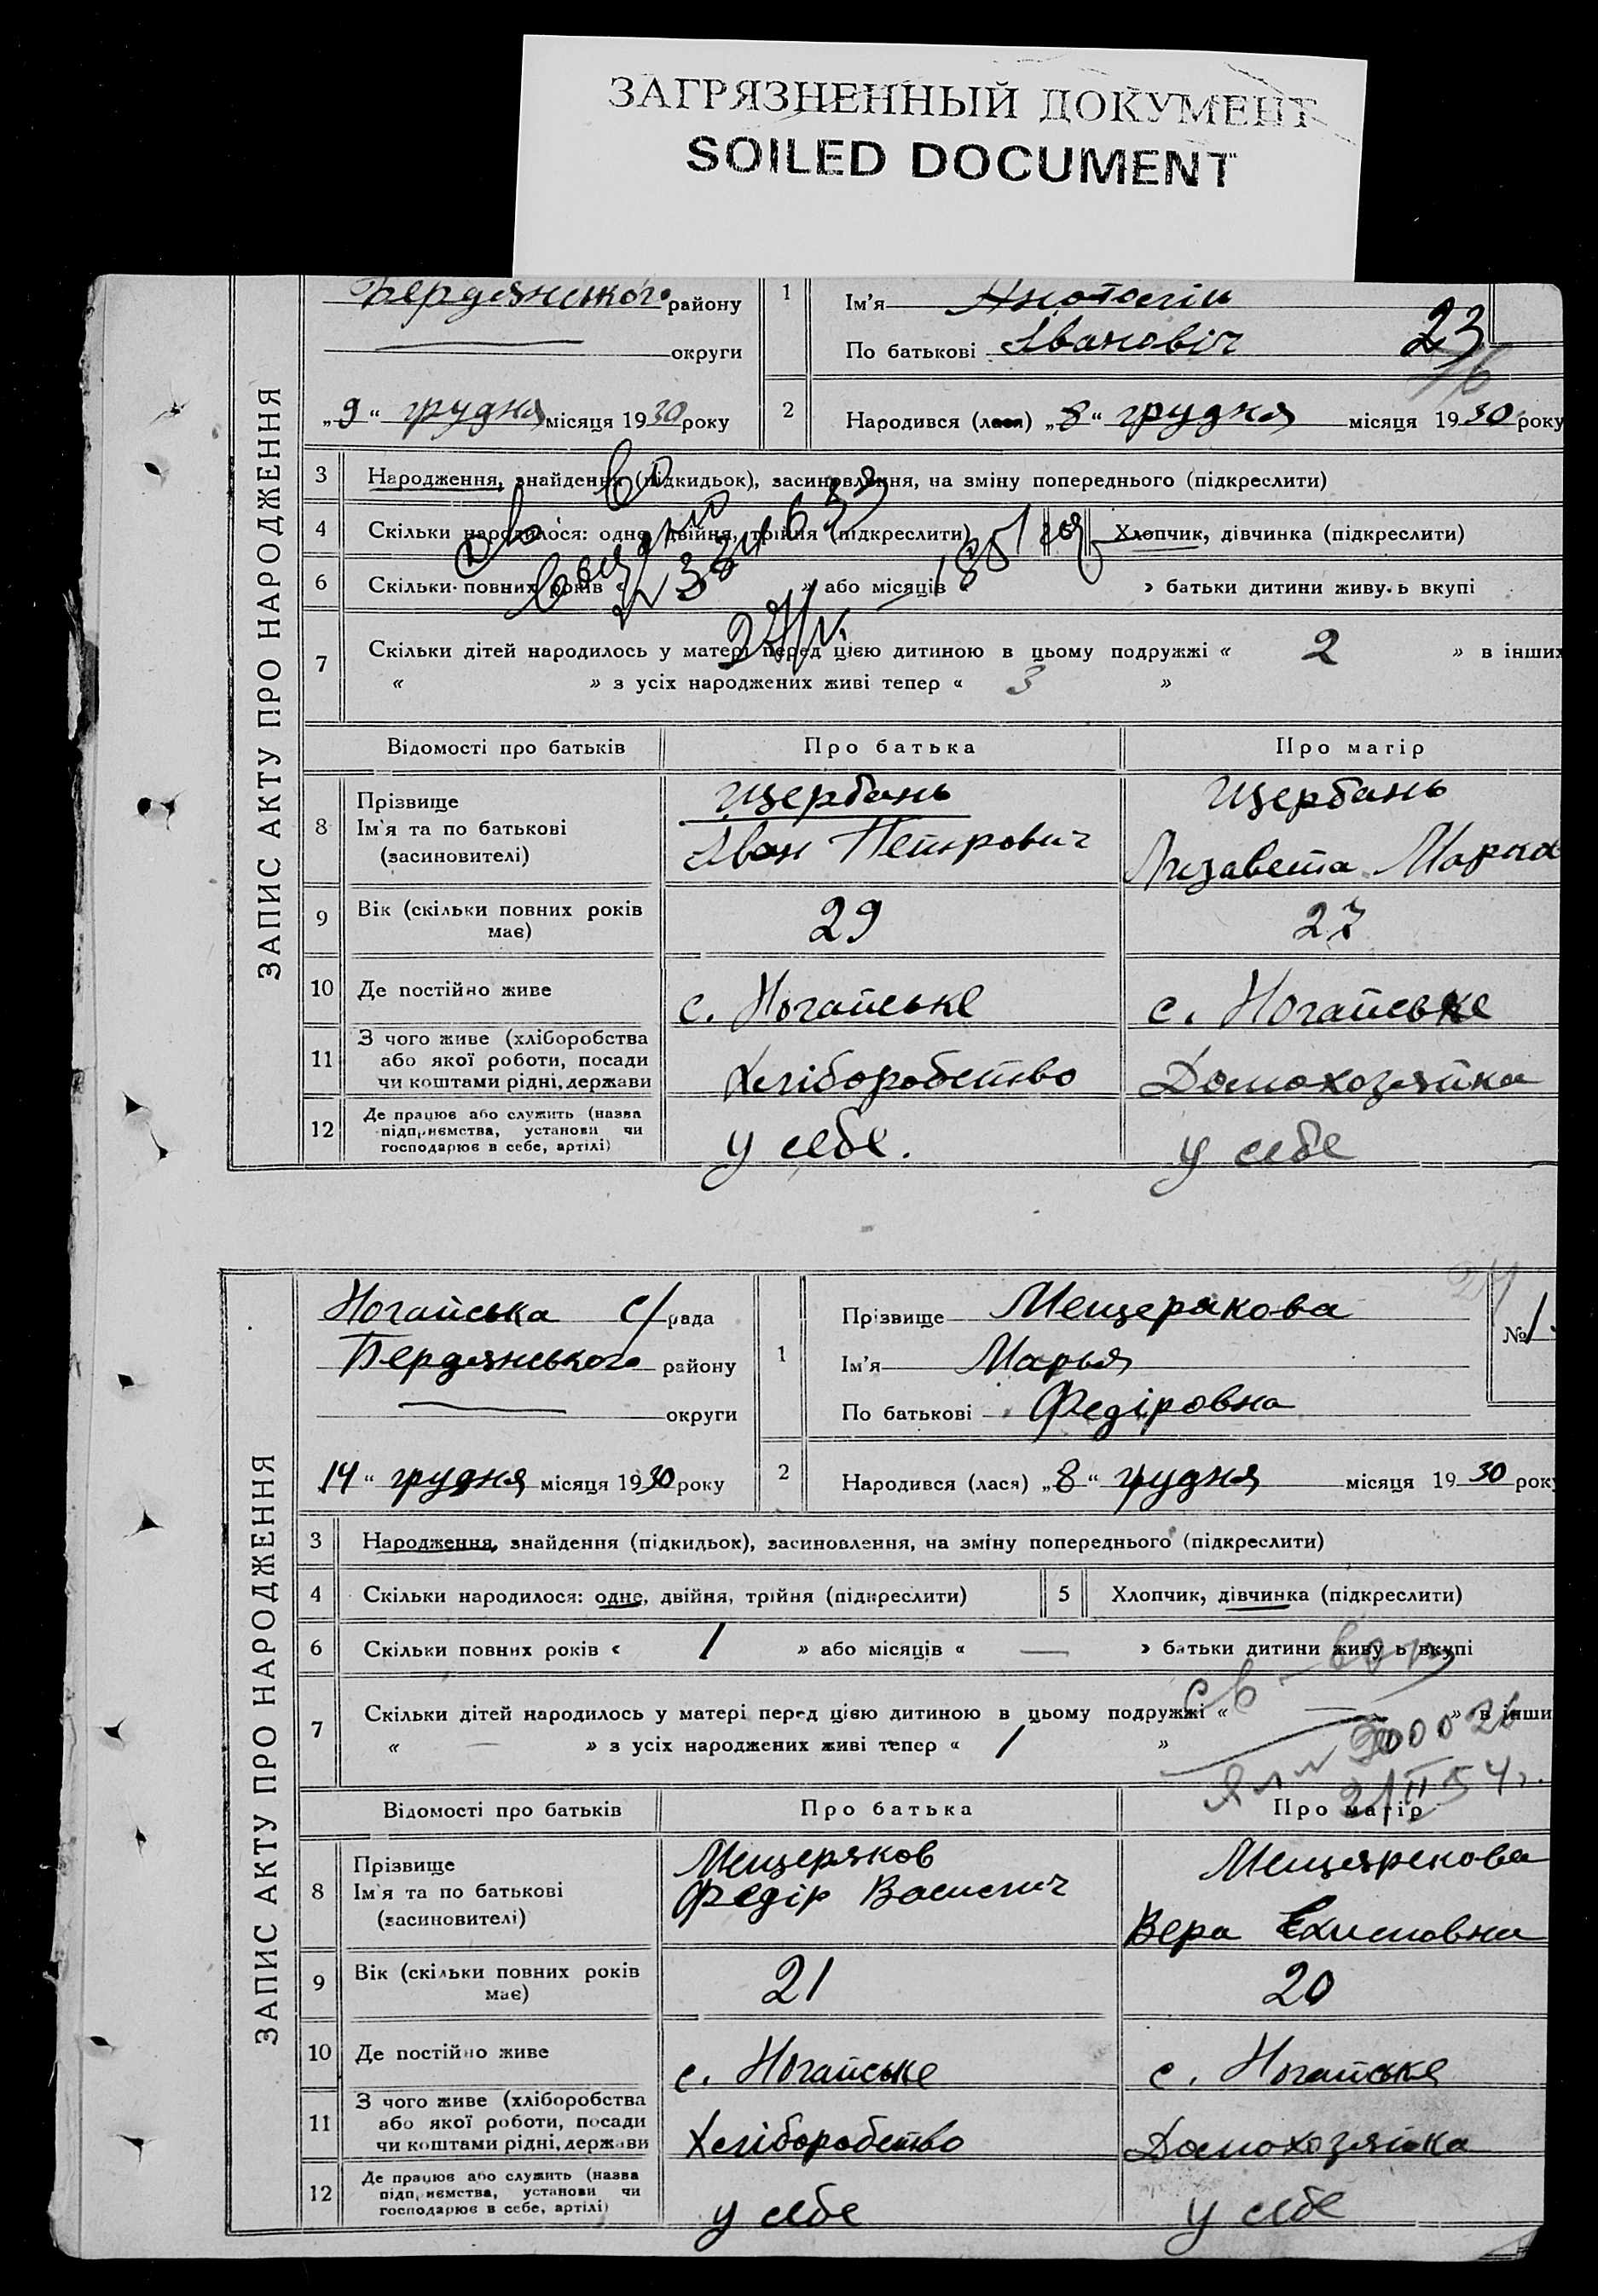 ЗАГРЯЗНЕННЫЙ ДОКУМЕНТ
SOILED DOCUMENT
ЗАПИС АКТУ ПРО НАРОДЖЕННЯ
Бердянського району
округи
„9“ грудня місяця 1930 року
1 Ім'я Анотогій
По батькові Івановіч
23
2 Народився (лася) „8“ грудня місяця 1930 року
3 Народження, знайдення (підкидьок), засиновлення, на зміну попереднього (підкреслити)
4 Скільки народилося: одне, двійня, трійня (підкреслити) Хлопчик, дівчинка (підкреслити)
6 Скільки повних років « » або місяців « » батьки дитини живуть вкупі
7 Скільки дітей народилось у матері перед цією дитиною в цьому подружжі « 2 » в інших
« » з усіх народжених живі тепер « 3 »
Відомості про батьків Про батька Про матір
8 Прізвище Щербань Щербань
Ім'я та по батькові Іван Петрович Лизавета Марко
(засиновителі)
9 Вік (скільки повних років має) 29 27
10 Де постійно живе с. Ногайське с. Ногайське
11 З чого живе (хліборобства
або якої роботи, посади
чи коштами рідні, держави Хліборобство Домохозяйка
12 Де працює або служить (назва
підприємства, установи чи
господарює в себе, артілі) у себе. у себе
ЗАПИС АКТУ ПРО НАРОДЖЕННЯ
Ногайська с/рада
Бердянського району
округи
14 “ грудня місяця 1930 року
24
1 Прізвище Мещерякова
№1
Ім'я Марья
По батькові Федіровна
2 Народився (лася) „8“ грудня місяця 1930 року
3 Народження, знайдення (підкидьок), засиновлення, на зміну попереднього (підкреслити)
4 Скільки народилося: одне, двійня, трійня (підкреслити) 5 Хлопчик, дівчинка (підкреслити)
6 Скільки повних років « 1 » або місяців « — » батьки дитини живуть вкупі
7 Скільки дітей народилось у матері перед цією дитиною в цьому подружжі « — » в інши
« — » з усіх народжених живі тепер « 1 »
21 II 54 г.
Відомості про батьків Про батька Про матір
8 Прізвище Мещеряков Мещярекова
Ім'я та по батькові Федір Василич Вера
(засиновителі)
9 Вік (скільки повних років має) 21 20
10 Де постійно живе с. Ногайське с. Ногайське
11 З чого живе (хліборобства
або якої роботи, посади
чи коштами рідні, держави Хліборобство Домохозяйка
12 Де працює або служить (назва
підприємства, установи чи
господарює в себе, артілі) у себе у себе